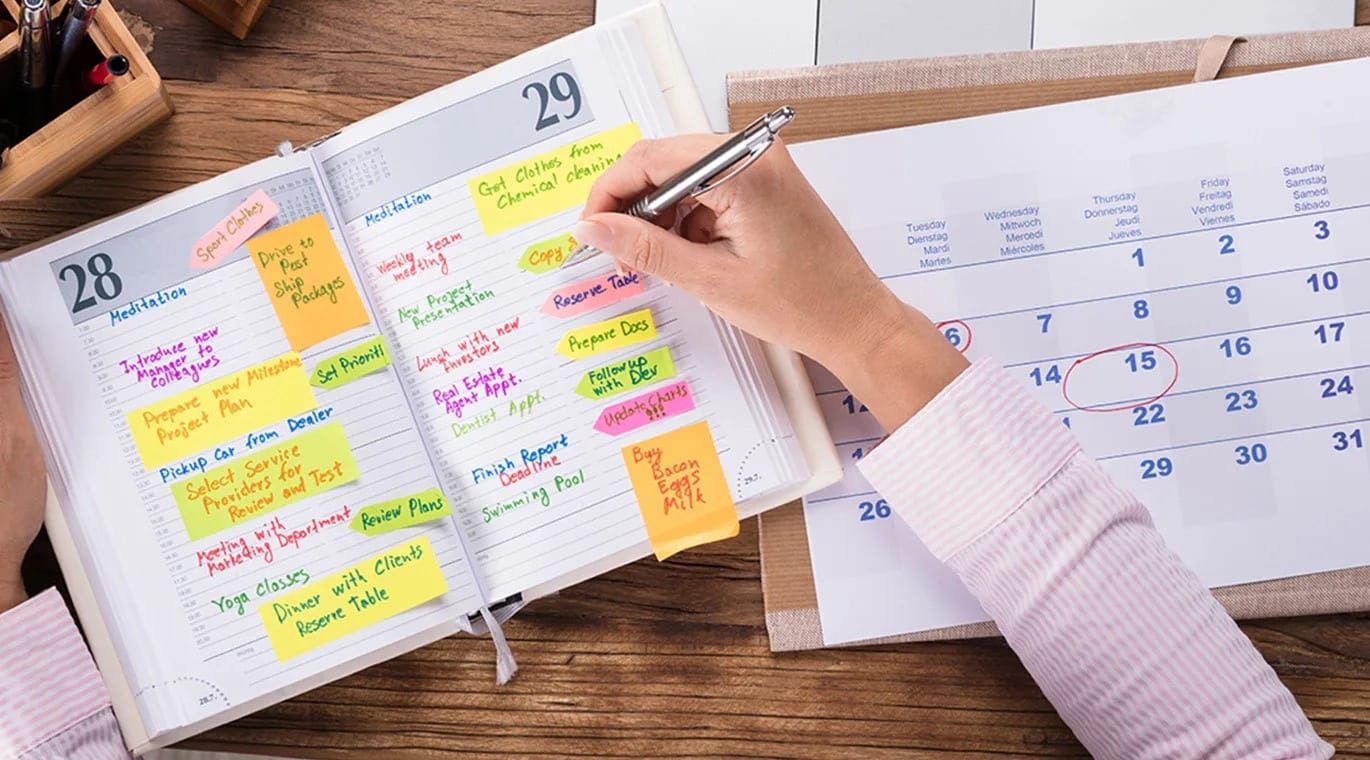 28
Sport Clothes
Drive to
Post
Ship
Packages
Meditation
Introduce new
Manager to
Colleagues
Set Prioriti
Prepare new Milestone
Project Plan
Pickup Car from Dealer
Select Service
Providers for
Review and Test
Meeting with
Marketing Department
Review Plans
Yoga Classes
Dinner with Clients
Reserve Table
28.7.
29
Get Clothes from
Chemical cleaning
Meditation
Weekly team
meeting
Copy
New Project
Presentation
Reserve Table
Lunch with new
Investors
Prepare Docs
Real Estate
Agent Appt.
Follow up
with Dev
Dentist Appt.
Update Charts
!!!
Finish Report
Deadline
Swimming Pool
Buy
Bacon
Eggs
Milk
29.7.
Tuesday Wednesday Thursday Friday Saturday
Dienstag Mittwoch Donnerstag Freitag Samstag
Mardi Mercredi Jeudi Vendredi Samedi
Martes Miércoles Jueves Viernes Sábado
1 2 3
6 7 8 9 10
14 15 16 17
22 23 24
26 29 30 31